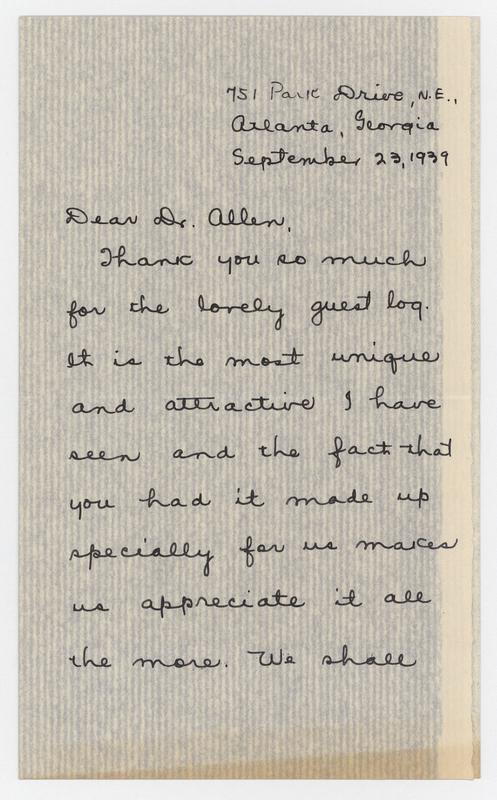 751 Park Drive, N.E.,
Atlanta, Georgia
September 23, 1939
Dear Dr. Allen,
Thank you so much
for the lovely guest log.
It is the most unique
and attractive I have
seen and the fact that
you had it made up
specially for us makes
us appreciate it all
the more. We shall